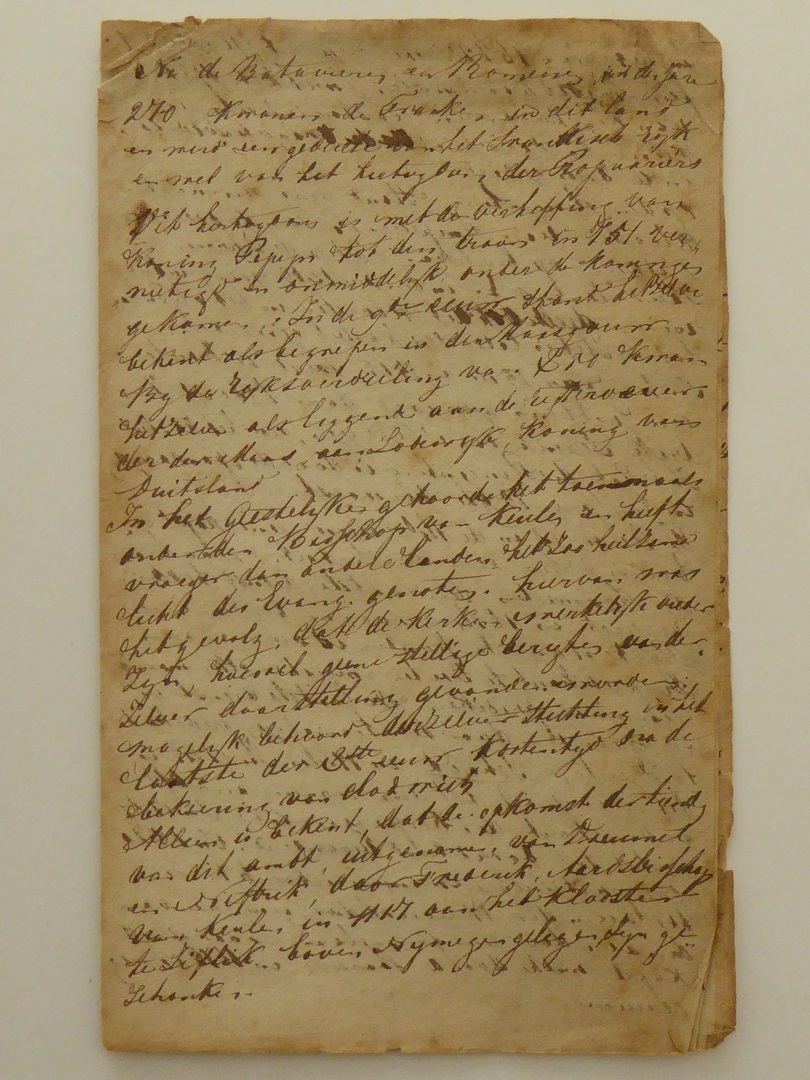 Na de Batavieren en Romeinen, in de jare
270 kwamen de Franken in dit land
en werd een gebiet van het Frankisch ryk
en wel van het hertogdom der Ripuariërs
Dit hertogdom is met de verheffing van
koning Pepyn tot den troon in 751 ver-
nietigd en onmiddelyk onder de koninges
gekomen. In de 9de eeuw stont het
bekent als begrepen in de Maasgouw
By de ryksverdeeling van 870 kwam
hetzelve als liggende aan de regter oever
der Maas, aan Lodewyk, koning van
Duitsland
In het Geestelyke gehoorde het toenmaals
onder den Bisschop van Keulen en heeft
vroeger dan andere landen het
licht des Evang. genoten. hiervan was
het gevolg, dat de kerken werkelyk
zyn, hoewel geene stellige berigten van der-
zelver daarstelling gevonden worden.
mogelyk behoord derzelver stichting in het
laatste der 8ste eeuw kortentyd na de
bekeering van
Alleen is bekent, dat de opkomst der tiende
van dit ambt, uitgenomen, van Dreumel
en, door Frederik, Aardsbisschop
van Keulen in 1117 aan het klooster
te Zifflik boven Nymegen gelegen zyn ge
schonken.